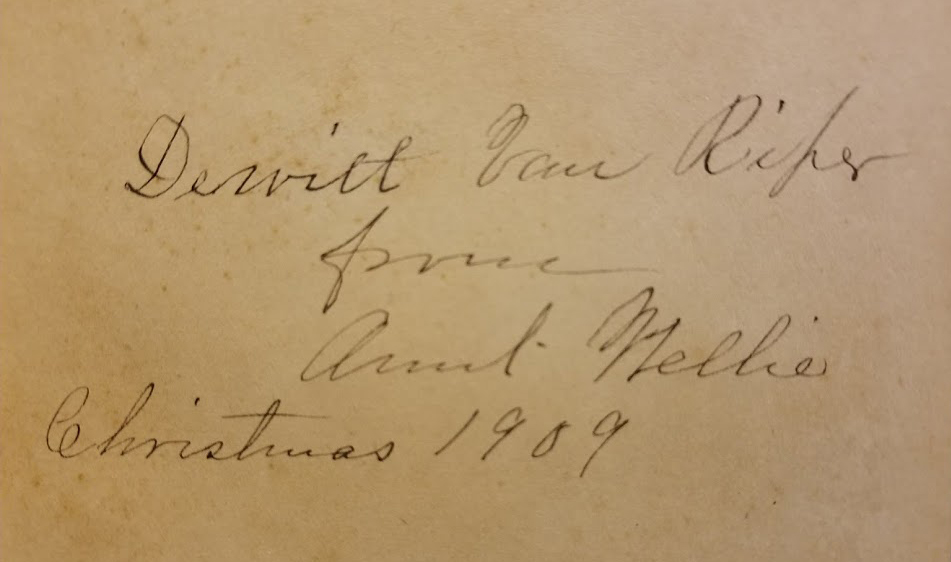 Dewitt Van Riper
from
Aunt Nellie
Christmas 1909